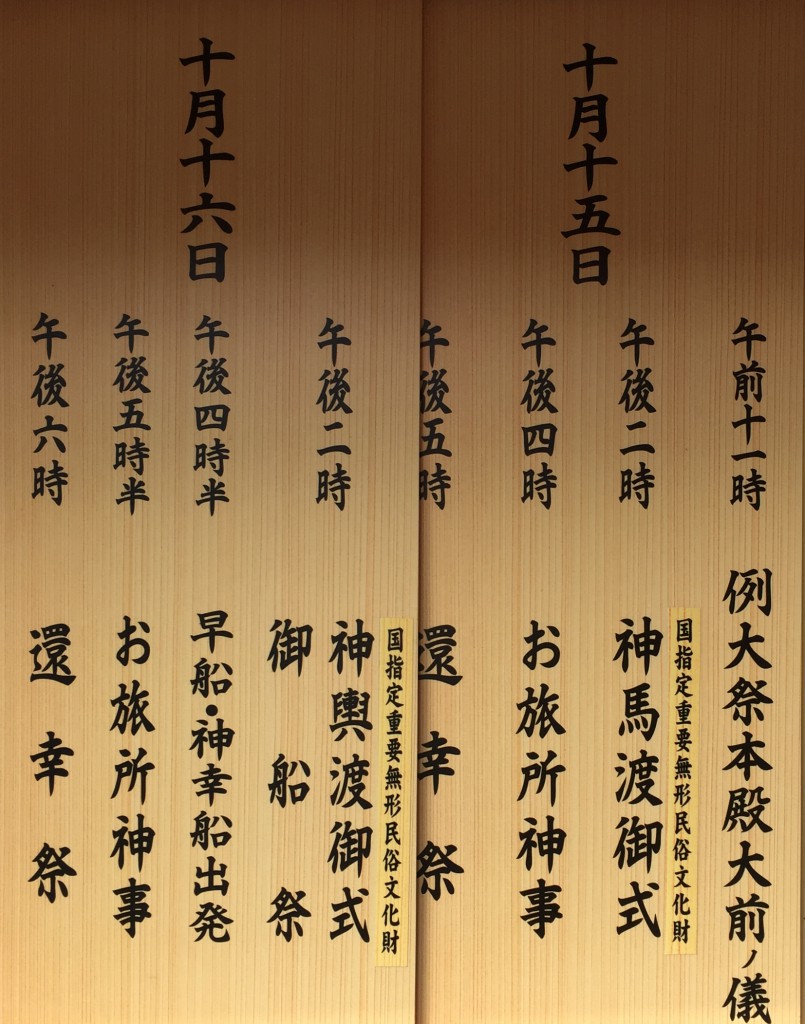 十月十五日
午前十一時 例大祭本殿大前ノ儀
国指定重要無形民俗文化財
午後二時 神馬渡御式
午後四時 お旅所神事
午後五時 還幸祭
十月十六日
国指定重要無形民俗文化財
午後二時 神輿渡御式
御船祭
午後四時半 早船・神幸船出発
午後五時半 お旅所神事
午後六時 還幸祭